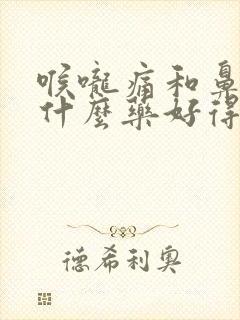 喉嚨痛和鼻
什麼藥好得
德希利奧